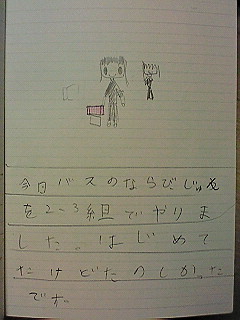 今日バスのならびじゅん
を2-3組でやりま
した。はじめて
だけどたのしかった
です。